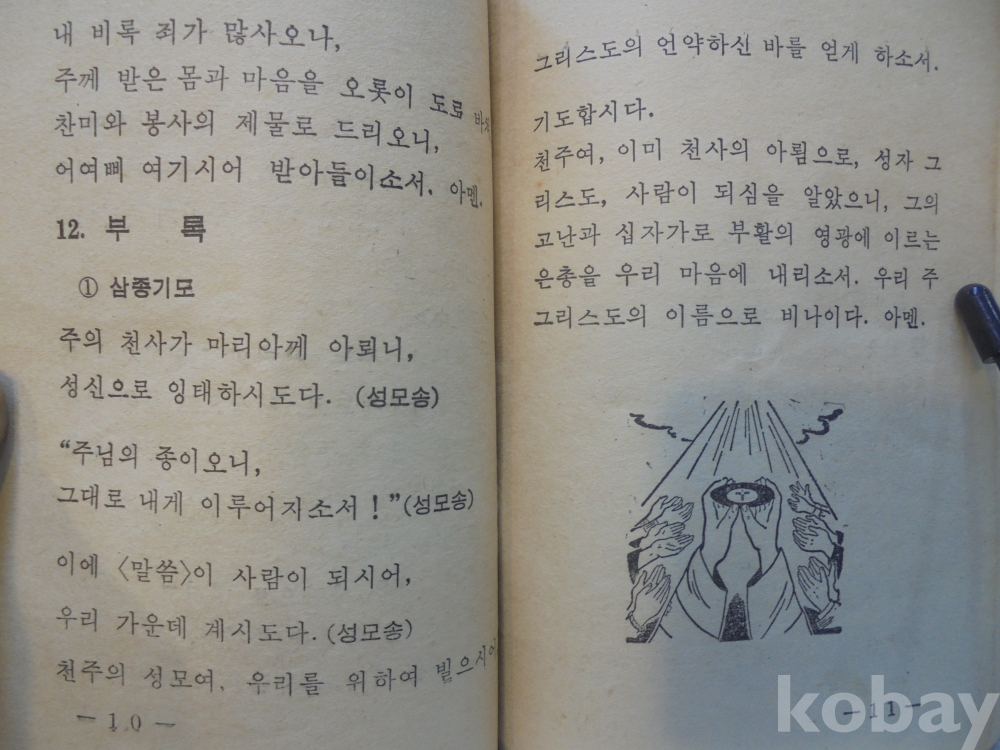 내 비록 죄가 많사오나,
주께 받은 몸과 마음을 오롯이 도로 바쳐
찬미와 봉사의 제물로 드리오니,
어여삐 여기시어 받아들이소서. 아멘.
12. 부 록
① 삼종기도
주의 천사가 마리아께 아뢰니,
성신으로 잉태하시도다. (성모송)
“주님의 종이오니,
그대로 내게 이루어지소서!”(성모송)
이에 〈말씀〉이 사람이 되시어,
우리 가운데 계시도다. (성모송)
천주의 성모여, 우리를 위하여 빌으시어
－10－
그리스도의 언약하신 바를 얻게 하소서.
기도합시다.
천주여, 이미 천사의 아룀으로, 성자 그
리스도, 사람이 되심을 알았으니, 그의
고난과 십자가로 부활의 영광에 이르는
은총을 우리 마음에 내리소서. 우리 주
그리스도의 이름으로 비나이다. 아멘.
－11－
kobay